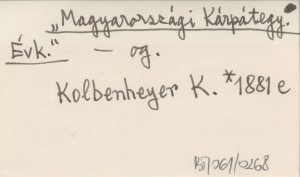 „Magyarországi Kárpátegy.
Évk.“ – og.
Kolbenheyer K. *1881 e
BJ/061/0268